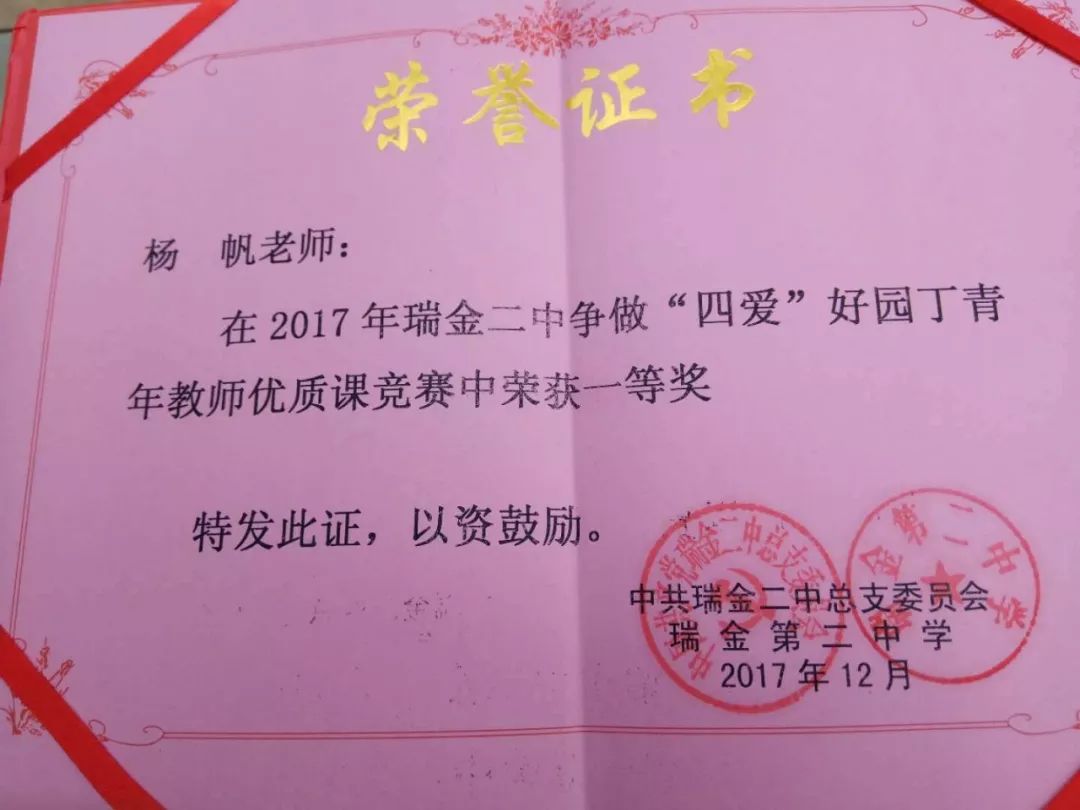 荣誉证书
杨 帆老师：
在2017年瑞金二中争做“四爱”好园丁青
年教师优质课竞赛中荣获一等奖
特发此证，以资鼓励。
中共瑞金二中总支委员会
瑞金第二中学
2017年12月